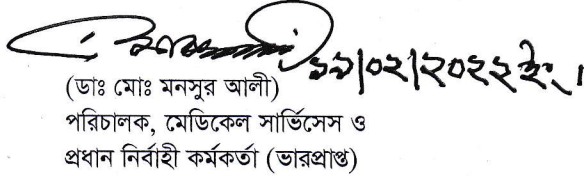 ১৯/০২/২০২২ ইং।
(ডাঃ মোঃ মনসুর আলী)
পরিচালক, মেডিকেল সার্ভিসেস ও
প্রধান নির্বাহী কর্মকর্তা (ভারপ্রাপ্ত)